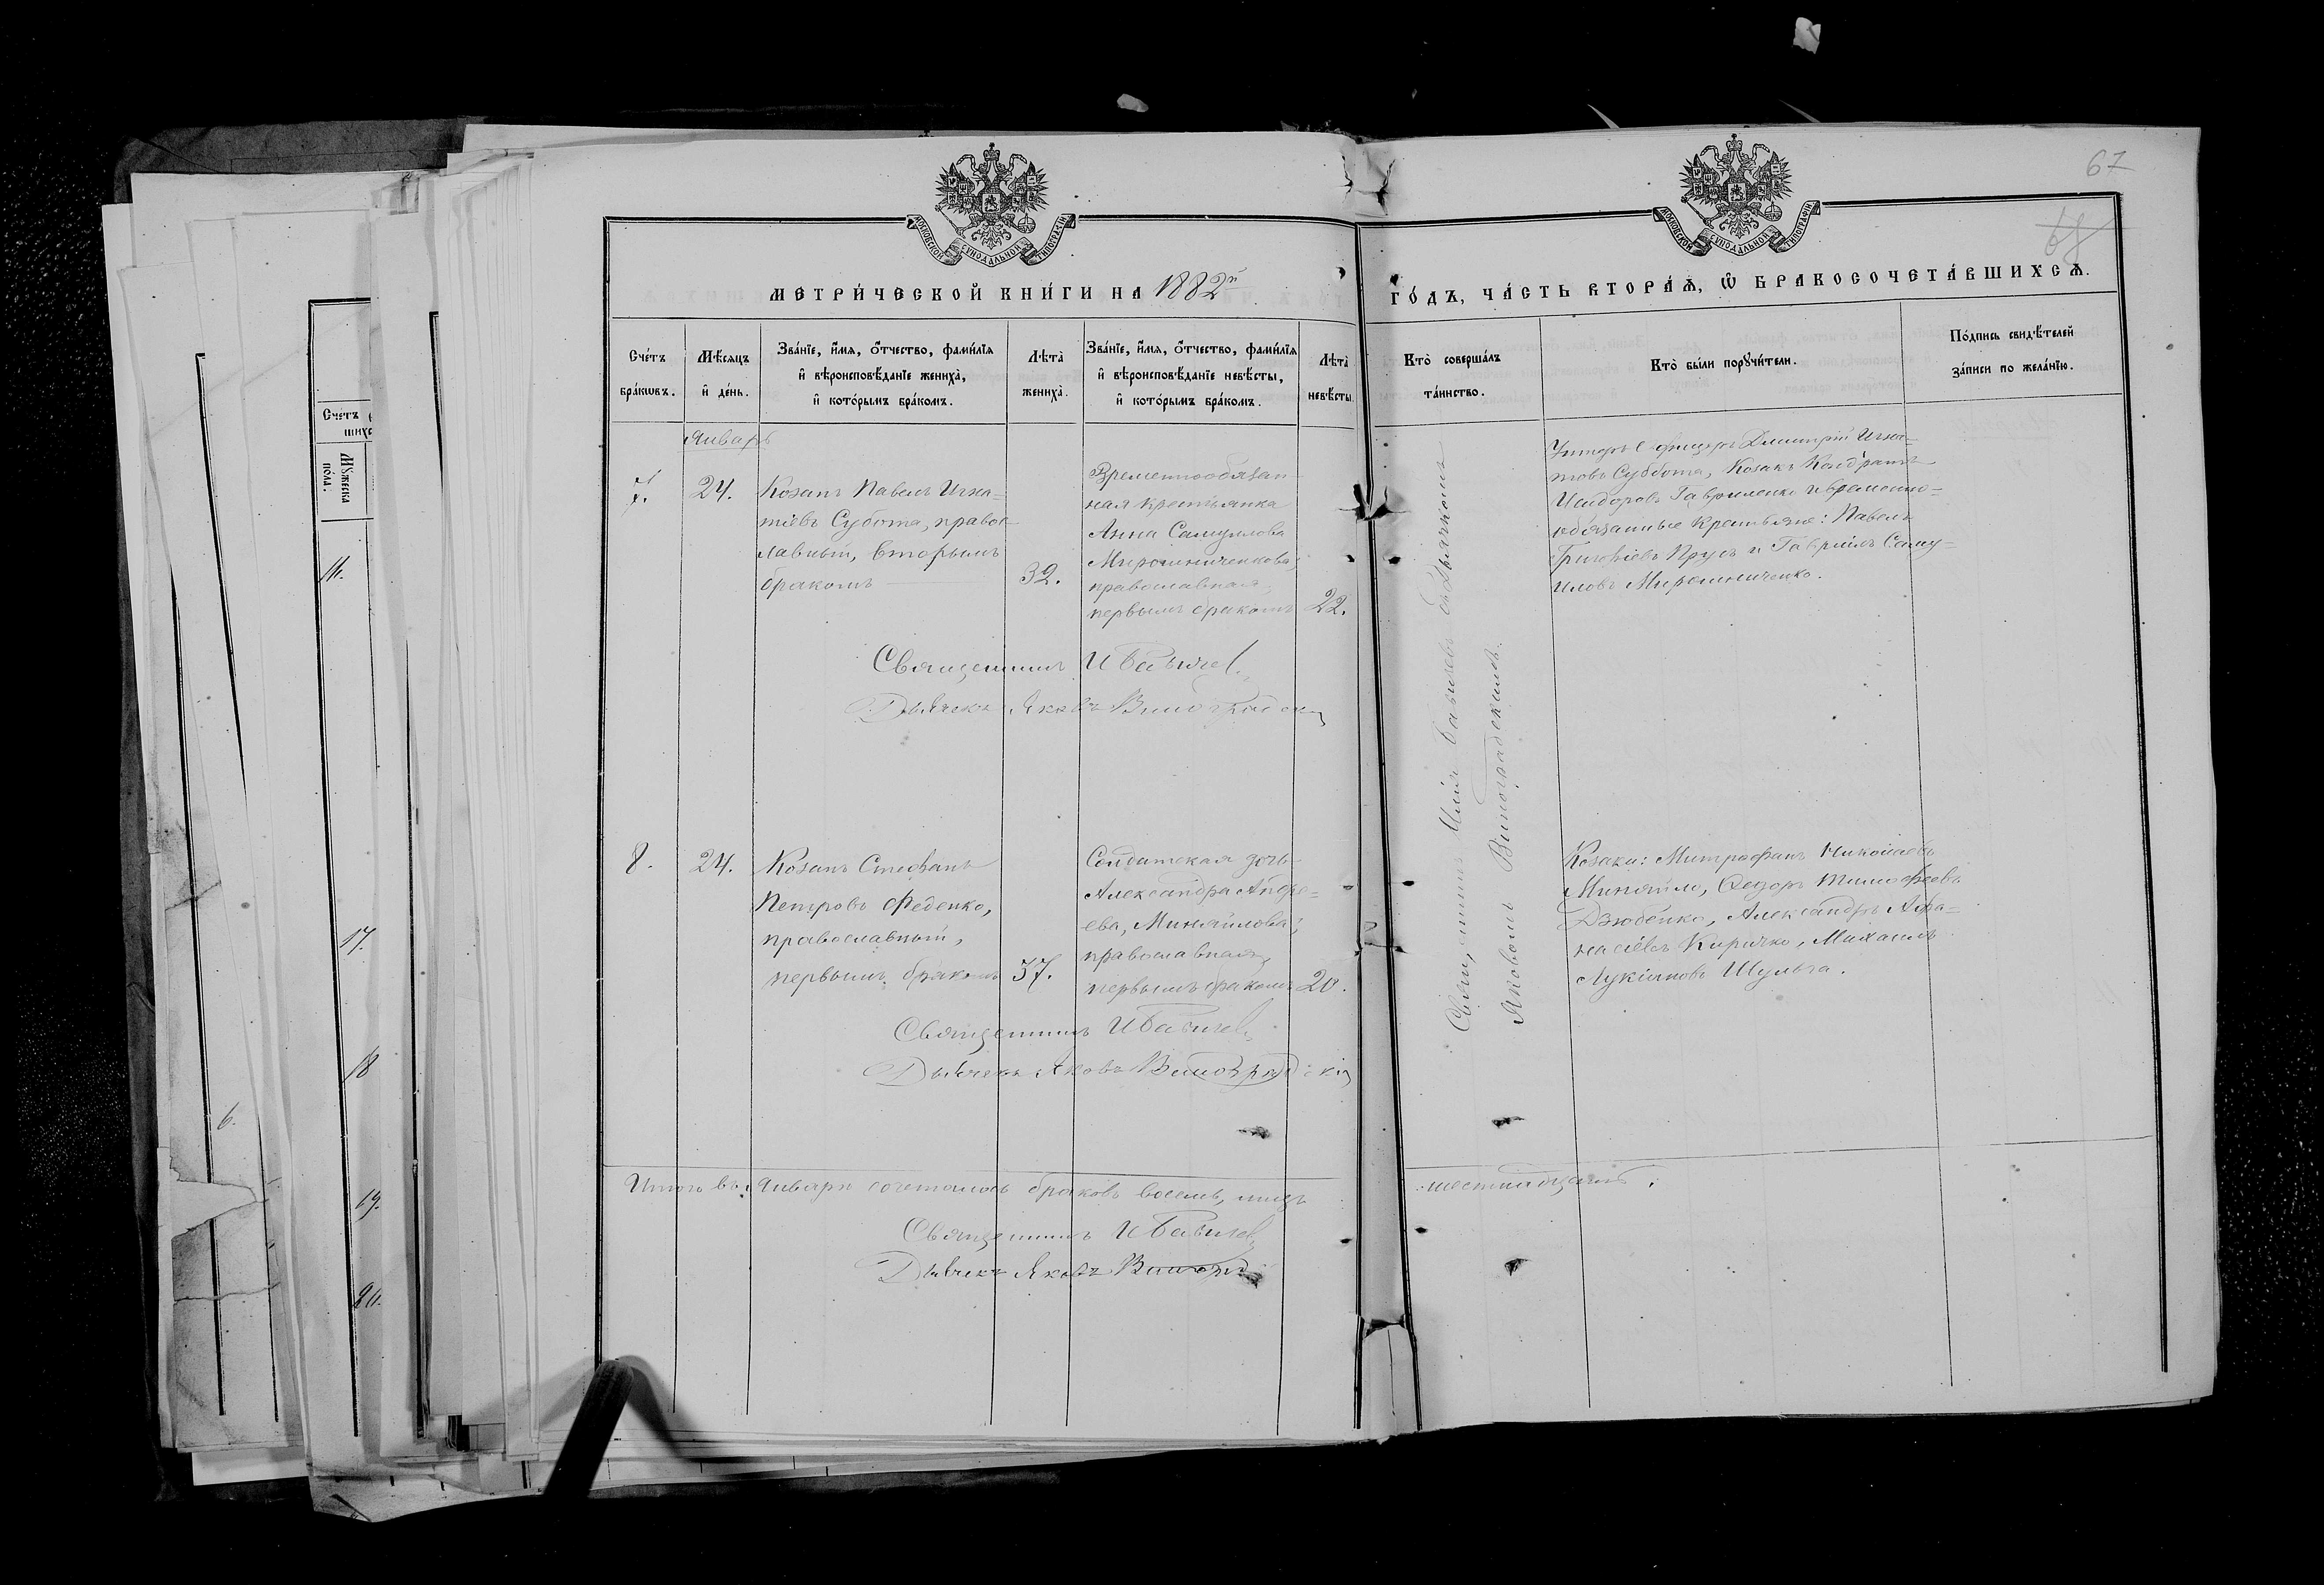 67
68
МОСКОВСКОЙ СУНОДАЛЬНОЙ ТИПОГРАФІИ
МОСКОВСКОЙ СУНОДАЛЬНОЙ ТИПОГРАФІИ
МЕТРИ́ЧЕСКОЙ КНИ́ГИ НА 1882й
ГО́ДЪ, ЧА́СТЬ ВТОРА́Ѧ, Ѡ҆ БРАКОСОЧЕТА́ВШИХСѦ.
Сче́тъ
бра́ковъ.
Мѣ́сяцъ
и҆ де́нь.
Зва́нїе, и҆́мя, ѻ҆́тчество, фами́лїя
и҆ вѣроисповѣ́данїе жениха̀,
и҆ кото́рымъ бра́комъ.
Лѣта̀
жениха̀.
Зва́нїе, и҆́мя, ѻ҆́тчество, фами́лїя
и҆ вѣроисповѣ́данїе невѣ́сты,
и҆ кото́рымъ бра́комъ.
Лѣта̀
невѣ́сты.
Кто̀ соверша́лъ
та́инство.
Кто̀ бы́ли порꙋчи́тели.
По́дпись свидѣ́телей
за́писи по жела́нїю.
Январь
7.
24.
Козакъ Павелъ Игна=
тіевъ Субота, правос=
лавный, вторымъ
бракомъ
32.
Временнообязан=
ная крестьянка
Анна Самуилова
Мирошниченкова,
православная,
первымъ бракомъ
22.
Унтеръ Офицеръ Димитрій Игна=
товъ Суббота, Козакъ Кондратъ
Исидоровъ Гавриленко и временно=
обязанные крестьяне: Павелъ
Григоріевъ Прусъ и Гавріилъ Саму=
иловъ Мирошниченко.
Священникъ И Бабичев
Дьячекъ Яковъ Виноградскій
Священникъ Илія Бабичевъ съ Дьячкомъ
Яковомъ Виноградскимъ.
8.
24.
Козакъ Стефанъ
Петровъ Феденко,
православный,
первымъ бракомъ
37.
Солдатская дочь
Александра Андре=
ева, Миняйлова;
православная,
первымъ бракомъ
20.
Козаки: Митрофанъ Николаевъ
Миняйло, Ѳедоръ Тимофеевъ
Дзюбенко, Александръ Афа=
насіевъ Киричко, Михаилъ
Лукіановъ Шульга.
Священникъ И Бабичев
Дьячекъ Яковъ Виноградскій
Итого въ Январѣ сочеталось браковъ восемь, лицъ
шестнадцать.
Священникъ И Бабичев
Дьячекъ Яковъ
Сче́тъ
Мꙋ́жеска
по́ла.
16.
17.
18
19.
20.
6.